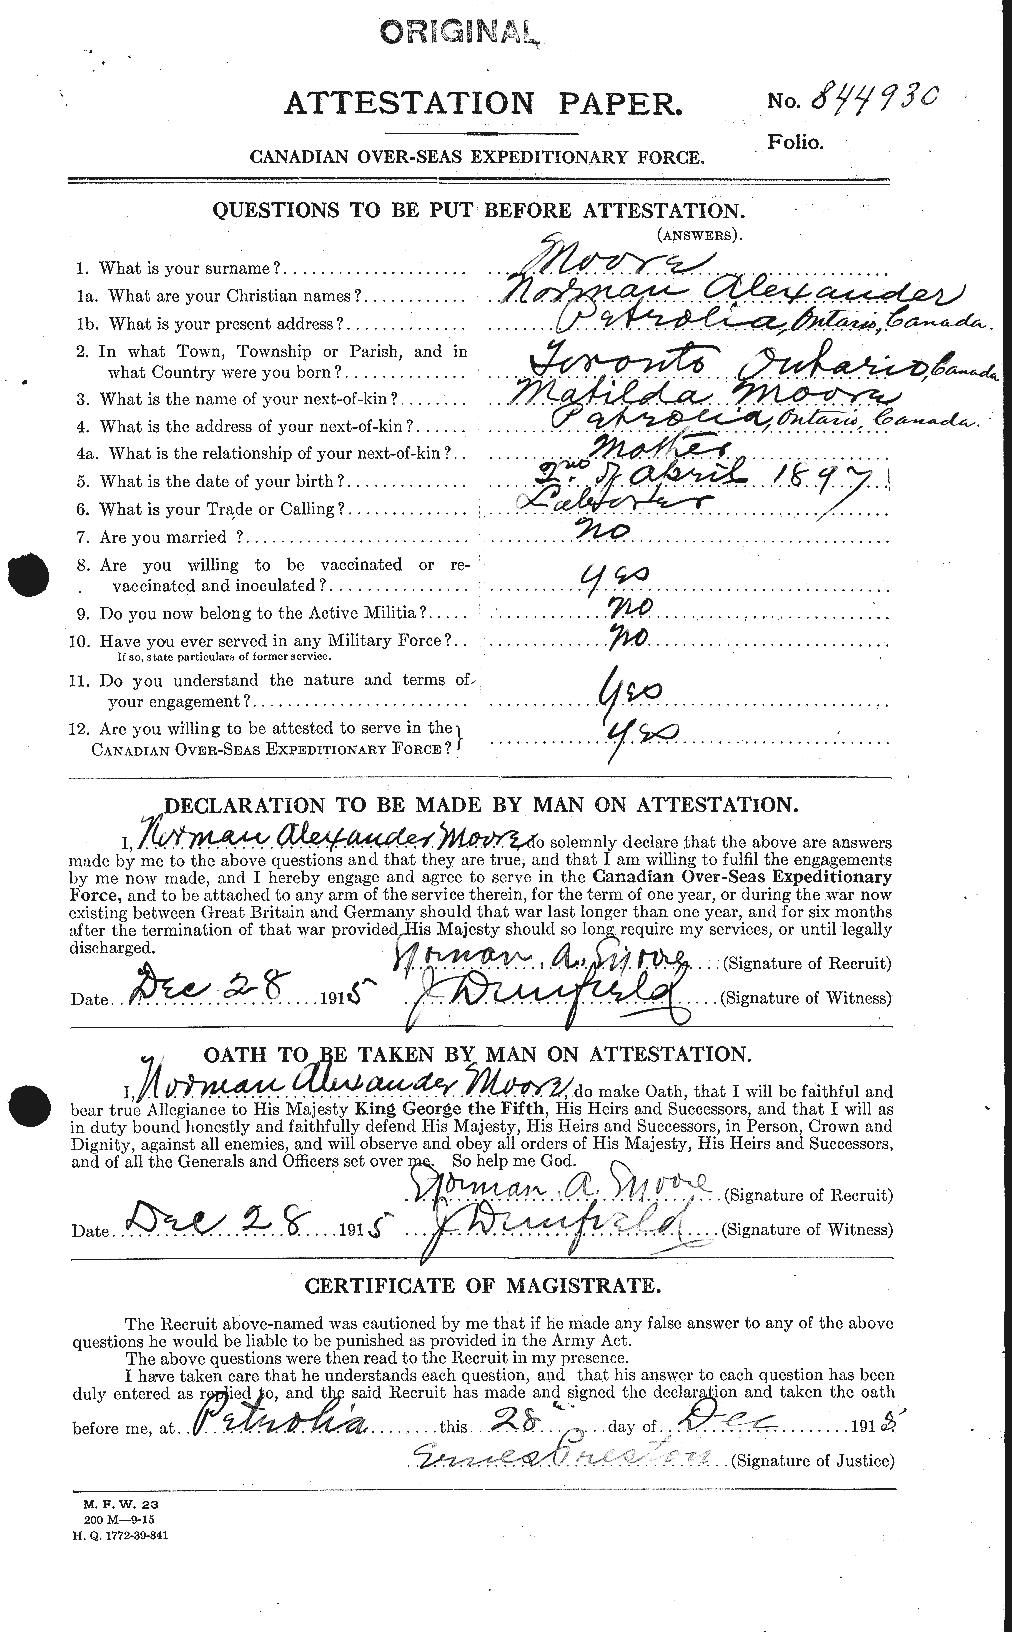 ORIGINAL
ATTESTATION PAPER.
No. 844930
Folio.
CANADIAN OVER-SEAS EXPEDITIONARY FORCE.
QUESTIONS TO BE PUT BEFORE ATTESTATION.
(ANSWERS).
1. What is your surname? Moore
1a. What are your Christian names? Norman Alexander
1b. What is your present address? Petrolia, Ontario, Canada.
2. In what Town, Township or Parish, and in
what Country were you born? Toronto Ontario, Canada
3. What is the name of your next-of-kin? Matilda Moore
4. What is the address of your next-of-kin? Petrolia, Ontario, Canada.
4a. What is the relationship of your next-of-kin? Mother
5. What is the date of your birth? 2nd of April 1897
6. What is your Trade or Calling? Laborer
7. Are you married ? no
8. Are you willing to be vaccinated or re-
vaccinated and inoculated? yes
9. Do you now belong to the Active Militia? no
10. Have you ever served in any Military Force? no
If so, state particulars of former service.
11. Do you understand the nature and terms of
your engagement? yes
12. Are you willing to be attested to serve in the
CANADIAN OVER-SEAS EXPEDITIONARY FORCE? yes
DECLARATION TO BE MADE BY MAN ON ATTESTATION.
I, Norman Alexander Moore do solemnly declare that the above are answers
made by me to the above questions and that they are true, and that I am willing to fulfil the engagements
by me now made, and I hereby engage and agree to serve in the Canadian Over-Seas Expeditionary
Force, and to be attached to any arm of the service therein, for the term of one year, or during the war now
existing between Great Britain and Germany should that war last longer than one year, and for six months
after the termination of that war provided His Majesty should so long require my services, or until legally
discharged.
Norman A. Moore (Signature of Recruit)
Date Dec 28 1915 J Dunfield (Signature of Witness)
OATH TO BE TAKEN BY MAN ON ATTESTATION.
I, Norman Alexander Moore, do make Oath, that I will be faithful and
bear true Allegiance to His Majesty King George the Fifth, His Heirs and Successors, and that I will as
in duty bound honestly and faithfully defend His Majesty, His Heirs and Successors, in Person, Crown and
Dignity, against all enemies, and will observe and obey all orders of His Majesty, His Heirs and Successors,
and of all the Generals and Officers set over me. So help me God.
Norman A. Moore (Signature of Recruit)
Date Dec 28 1915 J Dunfield (Signature of Witness)
CERTIFICATE OF MAGISTRATE.
The Recruit above-named was cautioned by me that if he made any false answer to any of the above
questions he would be liable to be punished as provided in the Army Act.
The above questions were then read to the Recruit in my presence.
I have taken care that he understands each question, and that his answer to each question has been
duly entered as replied to, and the said Recruit has made and signed the declaration and taken the oath
before me, at Petrolia this 28 day of Dec 1915
Preston (Signature of Justice)
M. F. W. 23
200 M—9-15
H. Q. 1772-39-841